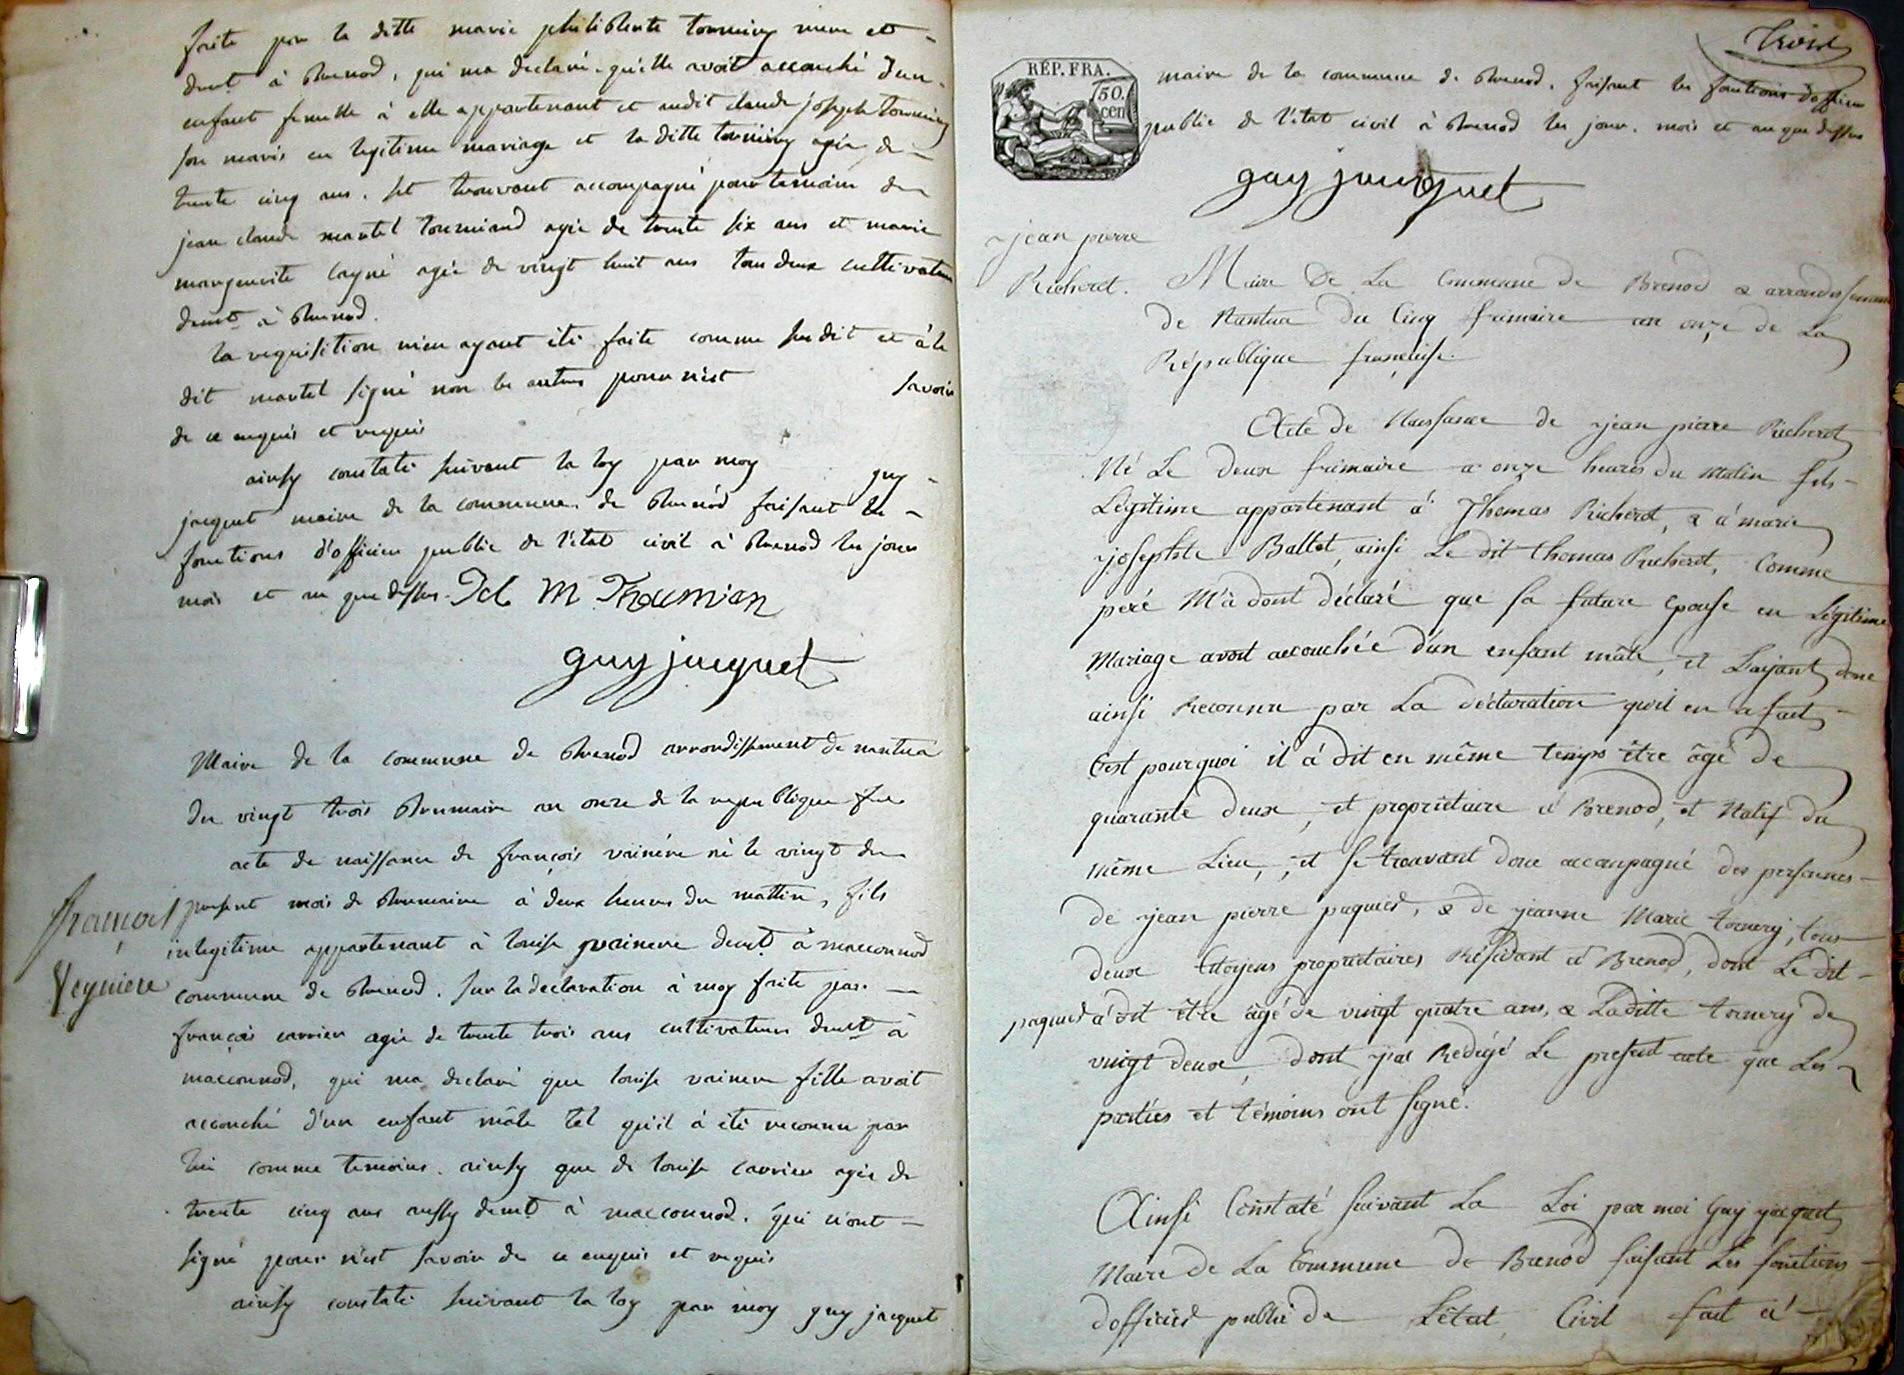 faite par la ditte marie philiberte tornery mere et
demt à Brenod, qui ma declaré qu'elle avoit accouché d'un
enfant femelle à elle appartenant et audit claude joseph
son maris en legitime mariage et la ditte tornery agée de
trente cinq ans. set trouvant accompagné pour temoins de
jean claude martel tourniand agé de trente six ans et marie
marguerite agée de vingt huit ans tou deux cultivateurs
demt à Brenod.
la requisition m'en ayant été faite comme sus dit et à le
dit martel signé non les autres pour n'est savoir
de ce enquis et requis
ainsy constaté suivant la loy par moy guy
jacquet maire de la commune de Brenod faisant les
fonctions d'officier public de l'état civil à Brenod les jour
mois et an que dessus.
guy jacquet
Maire de la commune de Brenod arrondissement de nantua
du vingt trois Brumaire an onze de la republique
acte de naissance de françois vainére né le vingt du
present mois de Brumaire à deux heures du mattin, fils
François
inlegitime appartenant à louise vainere demt à macconnod
Veyniere
commune de Brenod. sur la declaration à moy faite par
françois carrier agée de trente trois ans cultivateur demt à
macconnod, qui ma declaré que louise vainere fille avoit
accouché d'un enfant mâle tel qu'il à été reconnu par
lui comme temoins. ainsy que de louise carrier agée de
trente cinq ans aussy demt à macconnod. qui n'ont
signé pour n'est savoir de ce enquis et requis
ainsy constaté suivant la loy par moy guy jacquet
trois
RÉP. FRA.
50.
cen
maire de la commune de Brenod. faisant les fonctions d'officier
public de l'état civil à Brenod les jour. mois et an que dessus
guy jacquet
jean pierre
Richerot.
Maire De La Commune de Brenod & arrondissement
de Nantua du Cinq frimaire an onze de La
République française.
Acte de Naissance de jean pierre Richerot
Né Le deux frimaire a onze heures du matin fils
Légitime appartenant à Thomas Richerot, & à marie
josephte Ballet, ainsi Le dit thomas Richerot, Comme
peré M'à dont déclaré que sa future Epouse en Légitime
Mariage avoit accouchée d'un enfant mâle, et L'ayant donc
ainsi Reconnu par La déclaration qu'il en a fait,
C'est pourquoi il à dit en même temps être âgé de
quarante deux, et propriétaire à Brenod, et Natif du
même Lieu, et se trouvant donc accompagné des personnes
de jean pierre paquied, & de jeanne Marie tornery, tous
deux Citoyens propriétaires Résidant à Brenod, dont Le dit
paquied à dit être âgé de vingt quatre ans, & Laditte tornery de
vingt deux, dont j'ai Redigé Le present acte que Les
parties et témoins ont signé.
Ainsi Constaté suivant La Loi par moi Guy jacquet
Maire de La Commune de Brenod faisant Les fonctions
d'officier public de L'état Civil fait à